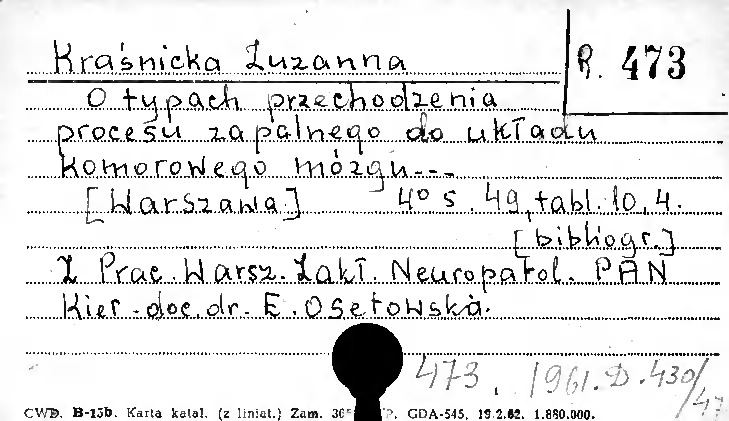 Kraśnicka Zuzanna R. 473
O typach przechodzenia
procesu zapalnego do układu
komorowego mózgu---
[Warszawa] 4° s. 49, tabl. 10, 4.
[bibliogr.]
Z Prac. Warsz. Zakł. Neuropatol. PAN
Kier. doc. dr. E. Osetowska.
473. 1961.D.430/47
CWD. B-15b. Karta katal. (z liniat.) Zam. GDA-545, 19.2.62. 1.880.000.